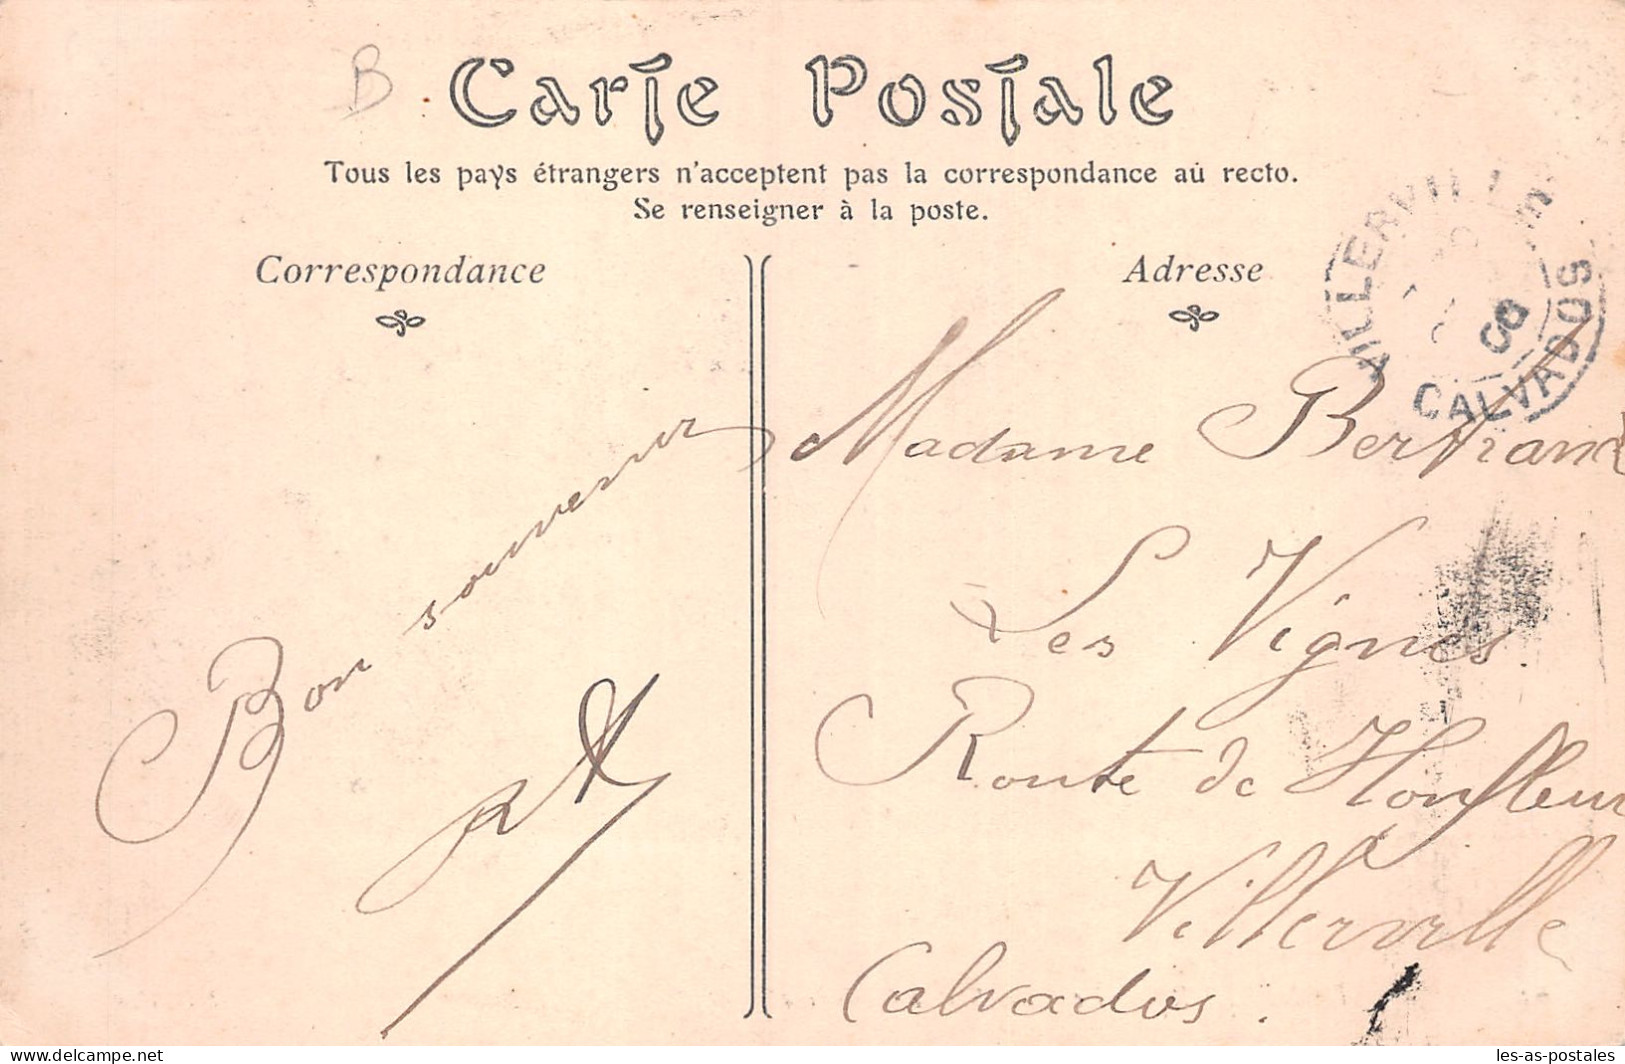 B
Carte Postale
Tous les pays étrangers n'acceptent pas la correspondance au recto.
Se renseigner à la poste.
Correspondance
Adresse
VILLERVILLE
CALVADOS
Bon souvenir
Madame Bertrand
Les Vignes
Route de Honfleur
Villerville
Calvados.
delcampe.net
les-as-postales